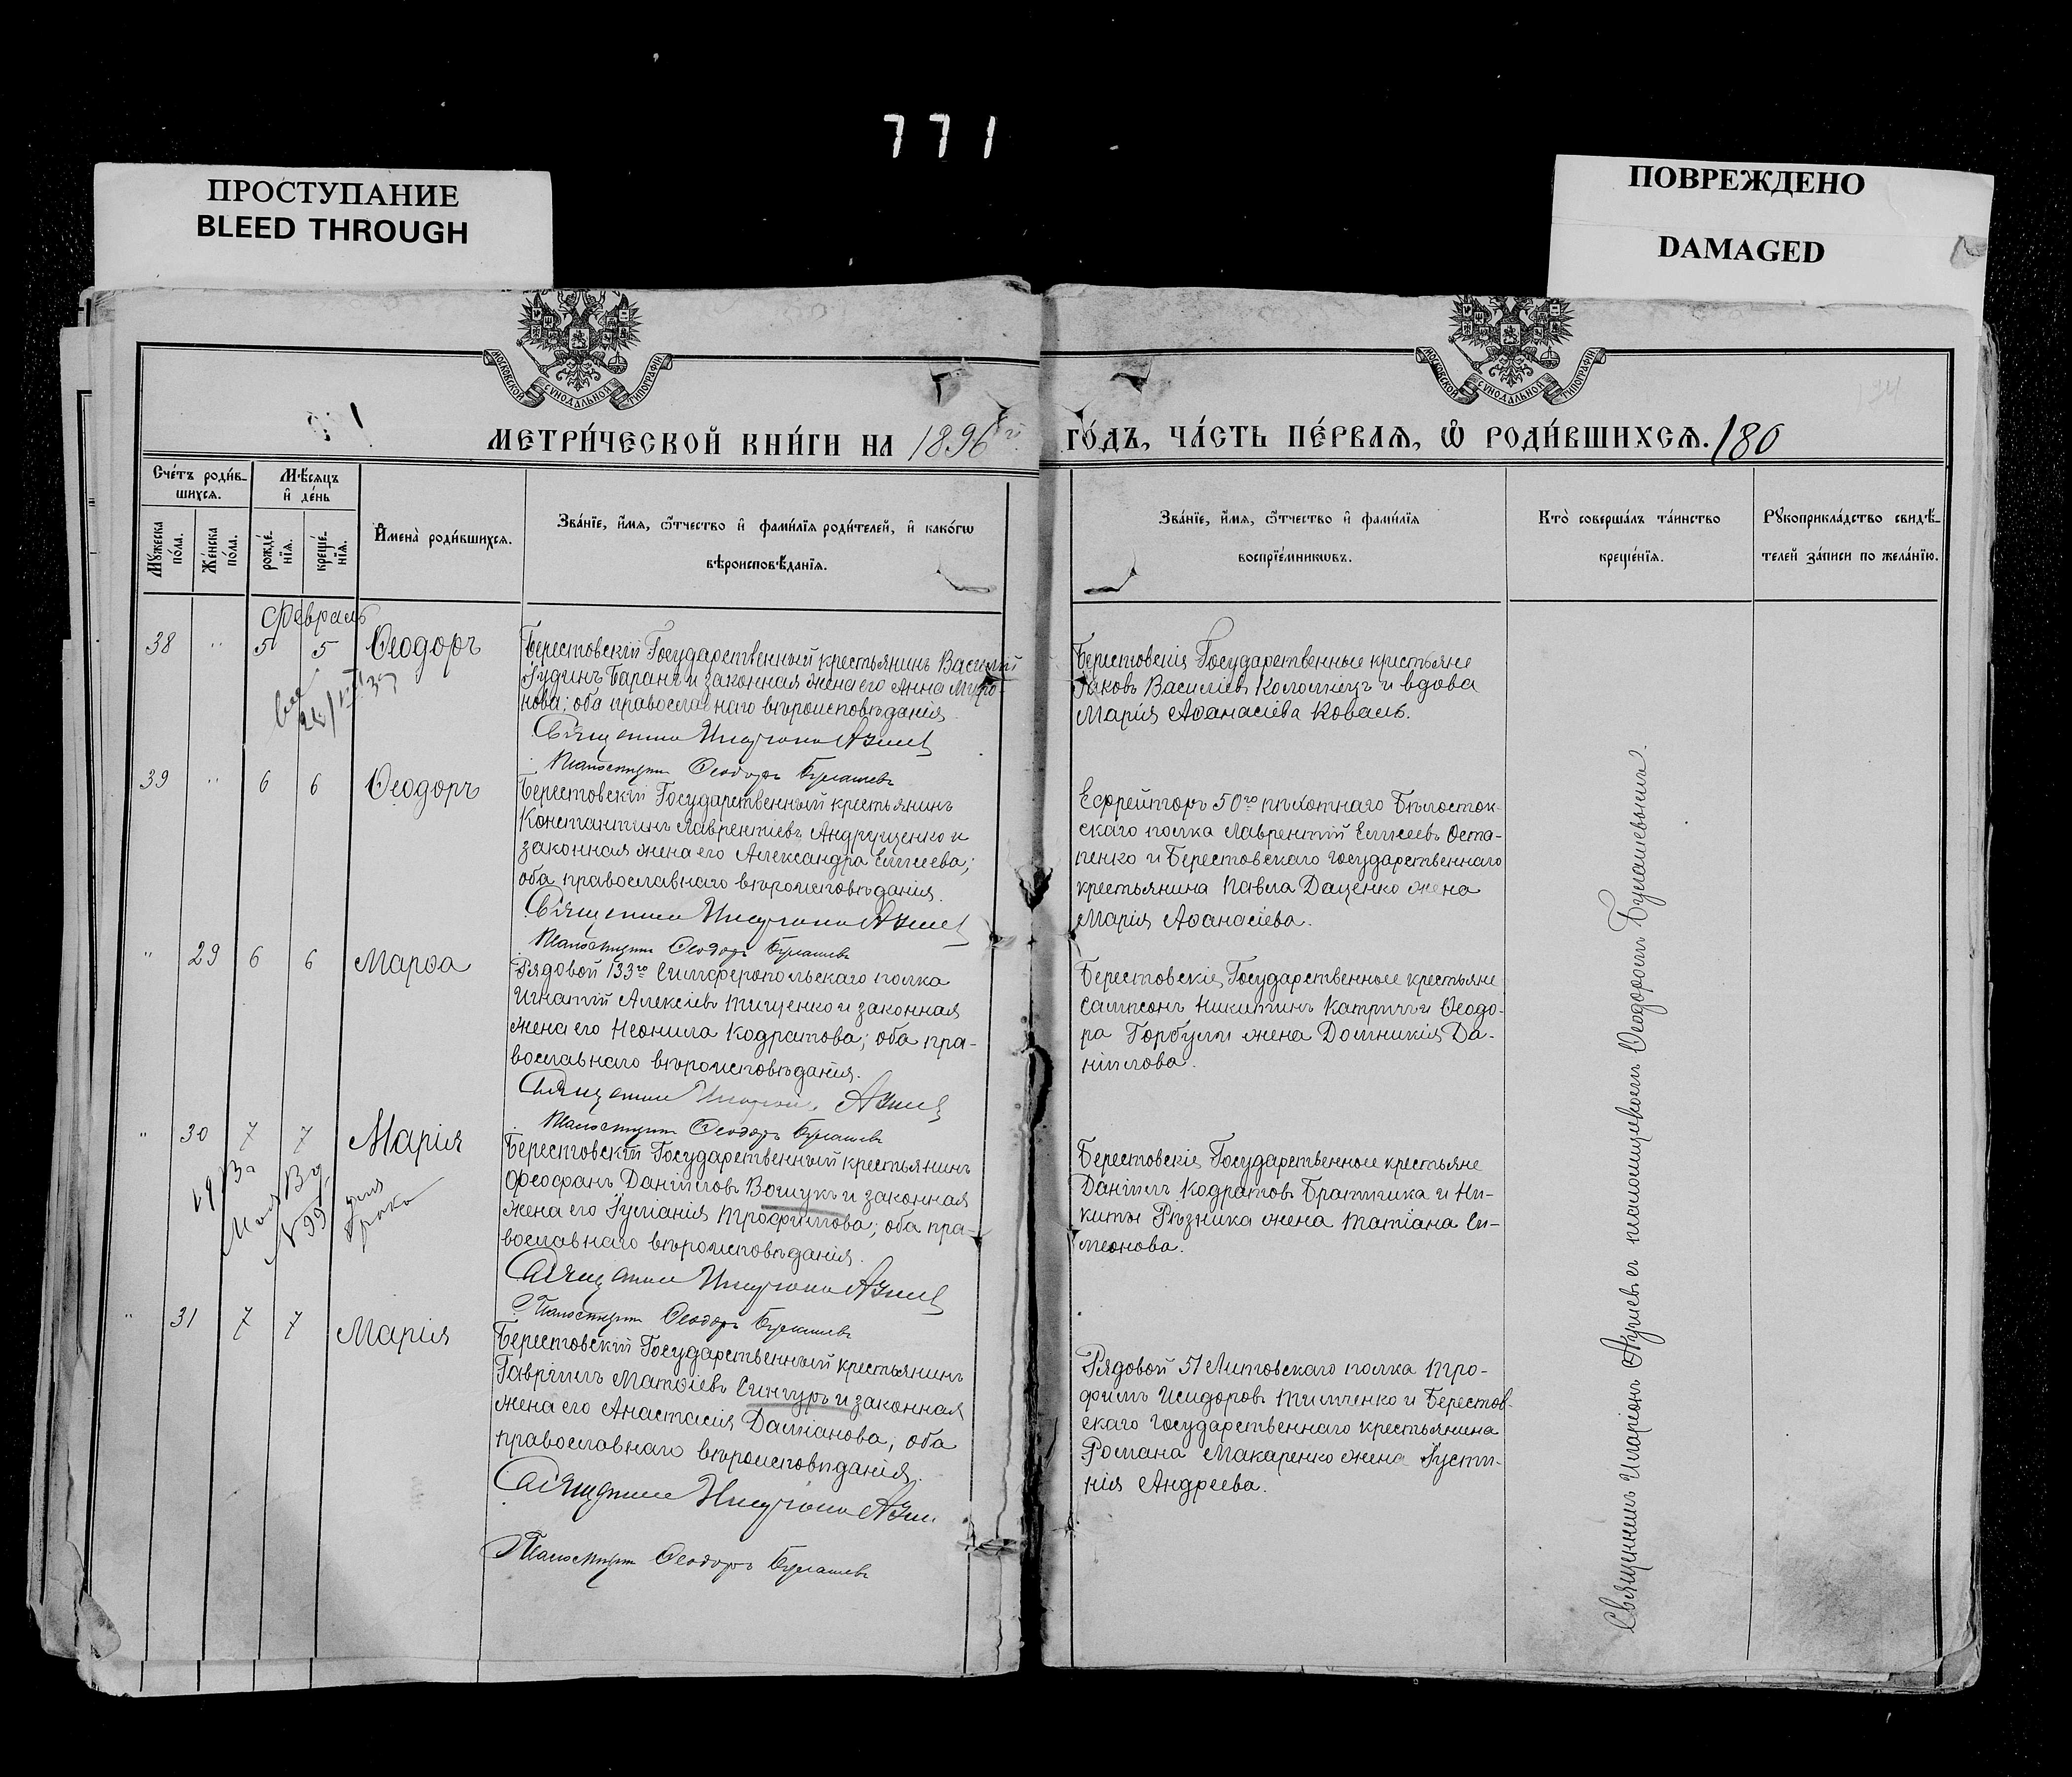 771
ПРОСТУПАНИЕ
BLEED THROUGH
ПОВРЕЖДЕНО
DAMAGED
МОСКОВСКОЙ СѴНОДАЛЬНОЙ ТИПОГРАФІИ
МОСКОВСКОЙ СѴНОДАЛЬНОЙ ТИПОГРАФІИ
МЕТРИ́ЧЕСКОЙ КНИ́ГИ НА 1896 й
ГО́ДЪ, ЧА́СТЬ ПЕ́РВАЯ, Ѡ РОДИ́ВШИХСЯ. 180
Сче́тъ роди́в-
шихся.
Мѣ́сяцъ
и де́нь
Мꙋжеска
по́ла.
Же́нска
по́ла.
рожде́-
нїя.
креще́-
нїя.
Имена̀ роди́вшихся.
Зва́нїе, и́мя, ѻ҆́тчество и фами́лїя роди́телей, и како́гѡ
вѣроисповѣ́данїя.
Зва́нїе, и́мя, ѻ҆́тчество и фами́лїя
воспрїе́мникѡвъ.
Кто̀ соверша́лъ та́инство
креще́нїя.
Рꙋкоприкла́дство свидѣ́-
телей за́писи по жела́нїю.
Февраль
38 " 5 5 Ѳеодоръ
Берестовскій Государственный крестьянинъ Василий
Іудинъ Баранъ и законная жена его Анна Миро-
нова; оба православнаго вѣроисповѣданія.
Священникъ Иларіонъ Азіев
Псаломщикъ Ѳеодоръ Булашевъ
Берестовскіе Государственные крестьяне
Іаковъ Василіевъ Коломіецъ и вдова
Марія Аѳанасіева Коваль.
39 " 6 6 Ѳеодоръ
Берестовскій Государственный крестьянинъ
Константинъ Лаврентіевъ Андрущенко и
законная жена его Александра Елисеева;
оба православнаго вѣроисповѣданія.
Священникъ Иларіонъ Азіев
Псаломщикъ Ѳеодоръ Булашевъ
Ефрейторъ 50го пѣхотнаго Бѣлосток-
скаго полка Лаврентій Елисеевъ Оста-
пенко и Берестовскаго государственнаго
крестьянина Павла Даценко жена
Марія Аѳанасіева.
" 29 6 6 Марѳа
Рядовой 133го Симферопольскаго полка
Игнатій Алексіевъ Тищенко и законная
жена его Неонила Кодратова; оба пра-
вославнаго вѣроисповѣданія.
Священникъ Иларіонъ Азіев
Псаломщикъ Ѳеодоръ Булашевъ
Берестовскіе Государственные крестьяне
Сампсонъ Никитинъ Катричъ и Ѳеодо-
ра Горбули жена Домникія Да-
ніилова.
" 30 7 7 Марія
Берестовскій Государственный крестьянинъ
Ѳеофанъ Даніиловъ Вощукъ и законная
жена его Іуліанія Трофимова; оба пра-
вославнаго вѣроисповѣданія.
Священникъ Иларіонъ Азіев
Псаломщикъ Ѳеодоръ Булашевъ
Берестовскіе Государственные крестьяне
Даніилъ Кодратовъ Братишка и Ни-
киты Рѣзника жена Татіана Си-
меонова.
" 31 7 7 Марія
Берестовскій Государственный крестьянинъ
Гавріилъ Матѳіевъ Сингуръ и законная
жена его Анастасія Даміанова; оба
православнаго вѣроисповѣданія.
Священникъ Иларіонъ Азіев
Псаломщикъ Ѳеодоръ Булашевъ
Рядовой 51 Литовскаго полка Тро-
фимъ Исидоровъ Тимченко и Берестов-
скаго государственнаго крестьянина
Романа Макаренко жена Іусти-
нія Андреева.
Священникъ Иларіонъ Азіевъ съ псаломщикомъ Ѳеодоромъ Булашевымъ.